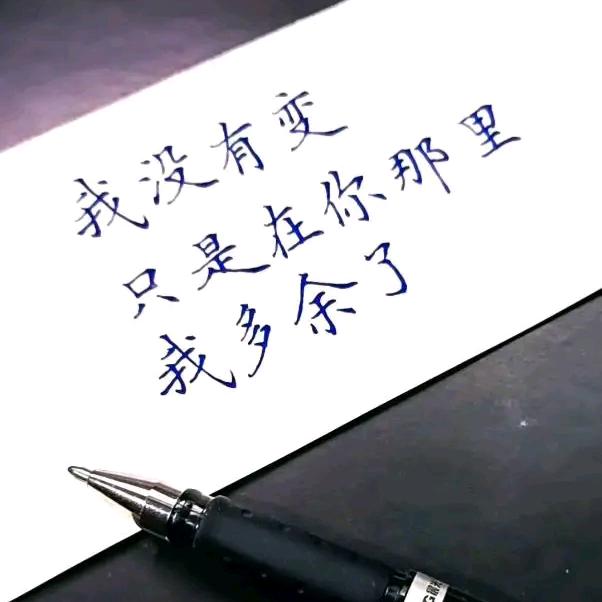 我没有变
只是在你那里
我多余了